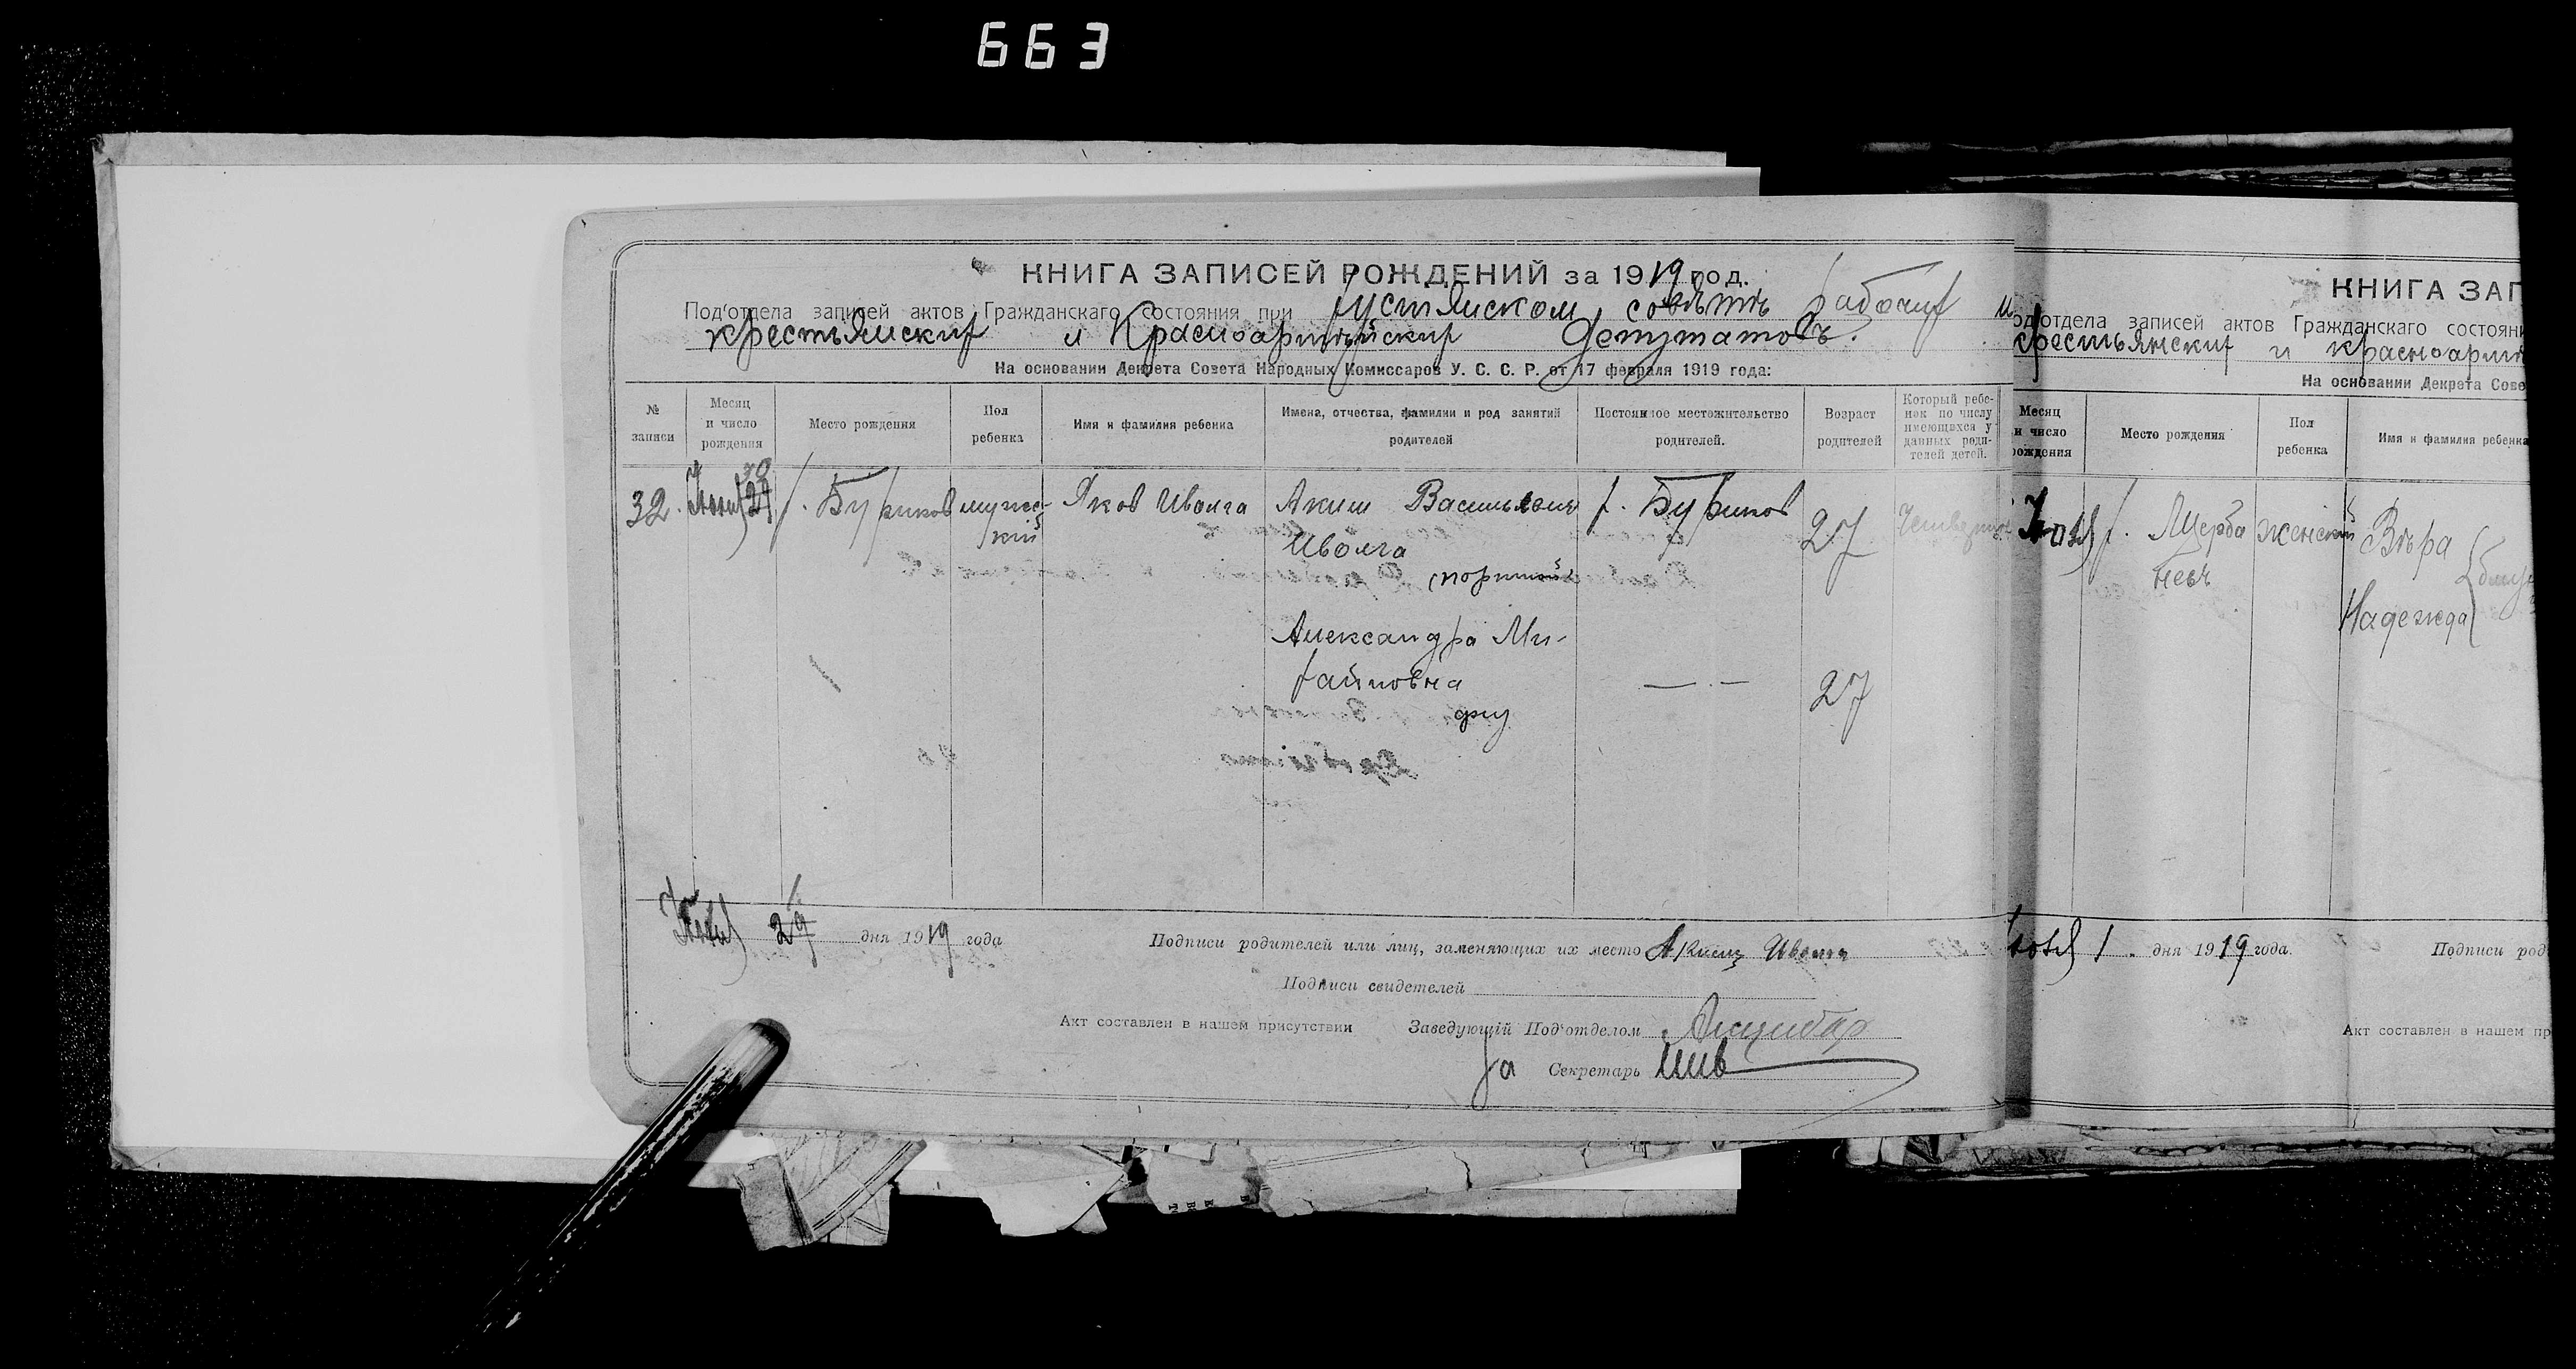 663
КНИГА ЗАПИСЕЙ РОЖДЕНИЙ за 1919 год.
Под'отдела записей актов Гражданскаго состояния при Густянском совѣтѣ рабочих и
крестьянских и Красноармейских Депутатовъ.
На основании Декрета Совета Народных Комиссаров У. С. С. Р. от 17 февраля 1919 года:
№ записи
Месяц и число рождения
Место рождения
Пол ребенка
Имя и фамилия ребенка
Имена, отчества, фамилии и род занятий родителей
Постоянное местожительство родителей.
Возраст родителей
Который ребенок по числу имеющихся у данных родителей детей.
32.
30
х. Буриков
мужс-
кий
Яков Иволга
Аким Васильевич
Иволга
(портной)
Александра Ми-
хайловна
х. Буриков
27
Четвертый
— . —
27
29 дня 1919 года
Подписи родителей или лиц, заменяющих их место Аким Иволга
Подписи свидетелей
Акт составлен в нашем присутствии Заведующій Под'отделом
За Секретарь
КНИГА ЗАП
од'отдела записей актов Гражданскаго состояни
крестьянских и красноарм
На основании Декрета Сове
Месяц и число рождения
Место рождения
Пол ребенка
Имя и фамилия ребенка
х. Щерба
невъ
женский
Вѣра
Надежда
1 . дня 1919 года.
Подписи род
Акт составлен в нашем пр